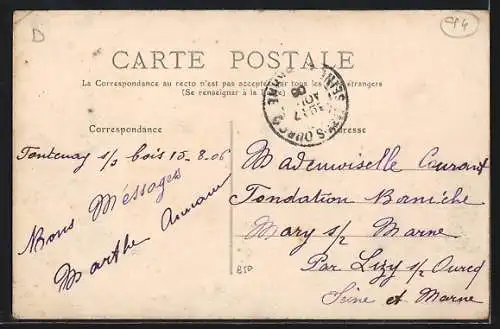 D
CP4
CARTE POSTALE
La Correspondance au recto n'est pas acceptée par tous les pays étrangers
(Se renseigner à la Poste)
Correspondance
Adresse
Fontenay s/s bois 15-8-06
Bons Messages
Marthe
Mademoiselle Courant
Fondation Borniche
Mary s/ Marne
Par Lizy s/ Ourcq
Seine et Marne